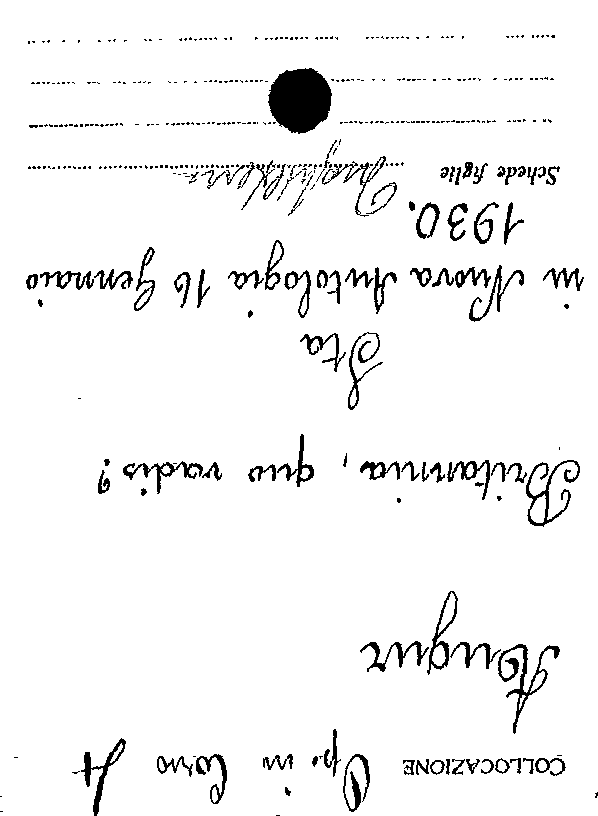 COLLOCAZIONE Op. in Corso A
Augur
Britannia, quo vadis?
Sta
in Nuova Antologia 16 Gennaio
1930.
Schede figlie Inghilterra